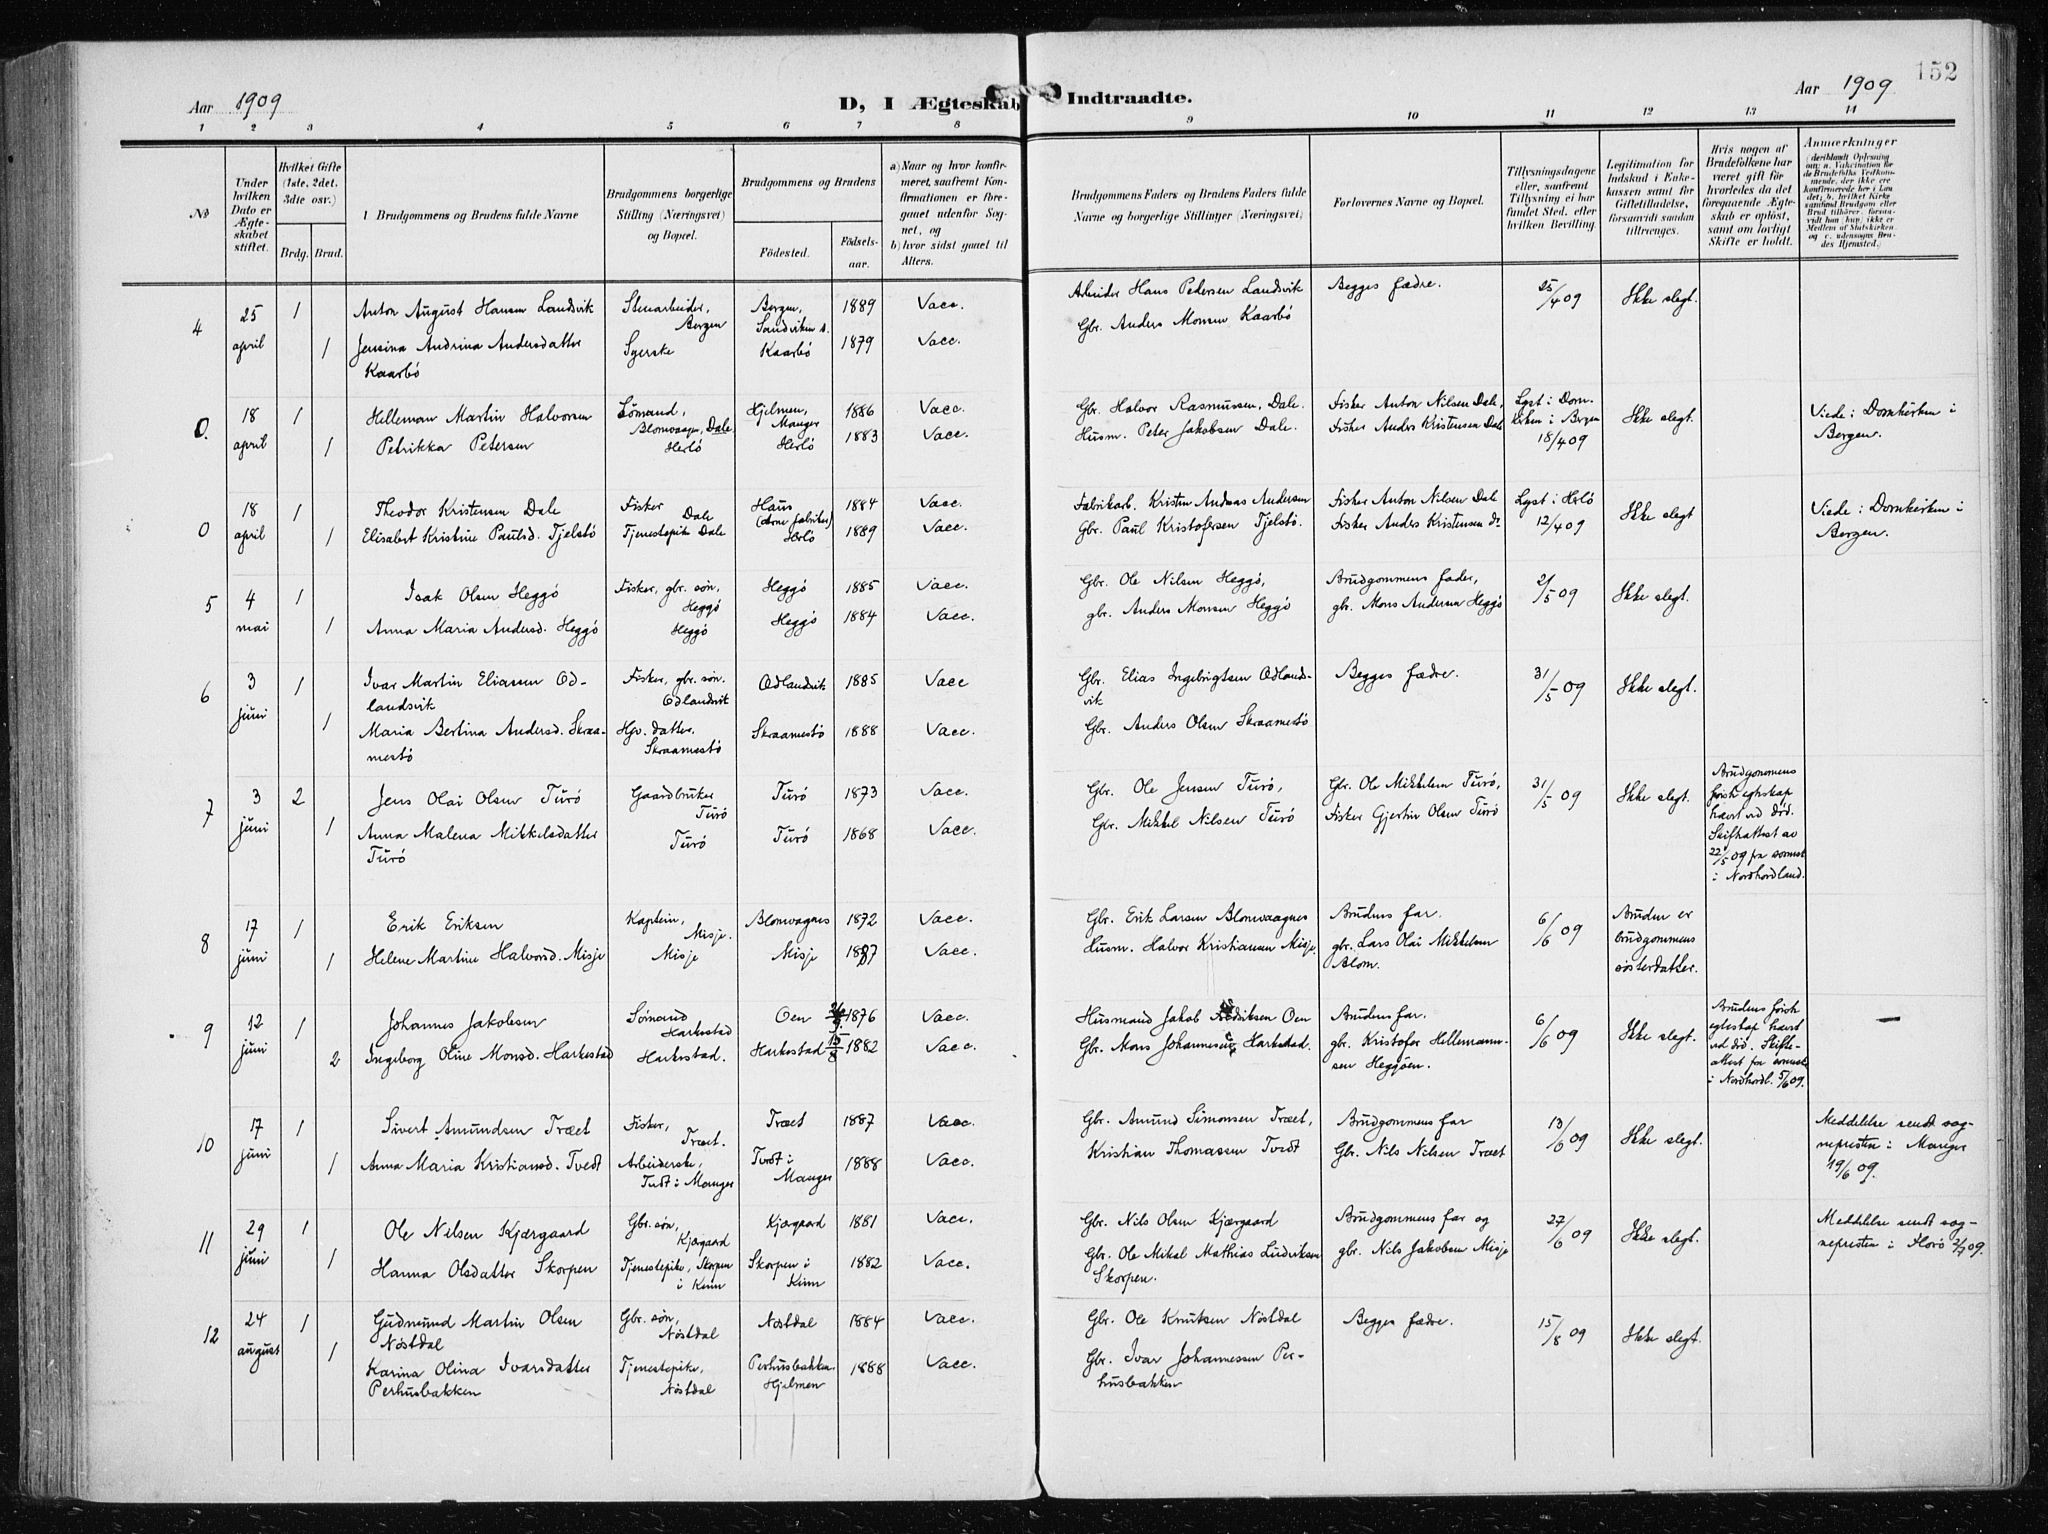 152
Aar 1909
D, I Ægteskab Indtraadte.
Aar 1909
1 2 3 4 5 6 7 8 9 10 11 12 13 14
No
Under hvilken Dato er Ægteskabet stiftet.
Hvilket Gifte (1ste, 2det, 3die osv.)
Brdg. Brud.
Brudgommens og Brudens fulde Navne
Brudgommens borgerlige Stilling (Næringsvei) og Bopæl.
Brudgommens og Brudens
Födested.
Födsels-aar.
a) Naar og hvor konfirmeret, saafremt Konfirmationen er foregaaet udenfor Sognet, og
b) hvor sidst gaaet til Alters.
Brudgommens Faders og Brudens Faders fulde Navne og borgerlige Stillinger (Næringsvei)
Forlovernes Navne og Bopæl.
Tillysningsdagene eller, saafremt Tillysning ei har fundet Sted, efter hvilken Bevilling.
Legitimation for Indskud i Enkekassen samt for Giftetilladelse, forsaavidt saadan tiltrænges.
Hvis nogen af Brudefolkene har været gift før hvorledes da det foregaaende Ægteskab er opløst, samt om lovligt Skifte er holdt.
Anmerkninger
(deriblandt Oplysning om: a. Vakcination for de Brudefolks Vedkommende, der ikke ere konfirmerede her i Landet; b. hvilket Kirkesamfund Brudgom eller Brud tilhører, forsaavidt han (hun) ikke er Medlem af Statskirken og c. udensogns Brudes Hjemsted.)
4
25 april
1
Anton August Hansen Landsvik
Stenarbeider, Bergen
Bergen, Sandviken s.
1889
Vacc.
Arbeider Hans Pedersen Landsvik
Begges fædre.
25/4 09
Ikke slegt.
1
Jensina Andrina Andersdatter Kaarbö
Syerske
Kaarbö
1879
Vacc.
Gbr. Anders Monsen Kaarbö
0.
18 april
1
Helleman Martin Halvorsen
Sömand, Blomvaagen, Dale
Hjelmen, Manger
1886
Vacc.
Gbr. Halvor Rasmussen, Dale.
Fisker Anton Nilsen Dale,
Lyst i Domkirken i Bergen 18/4 09
Ikke slegt.
Viede i Domkirken i Bergen.
1
Petrikka Petersen
Herlö
Herlö
1883
Vacc.
Husm. Peter Jakobsen Dale.
Fisker Anders Kristensen Dale
0
18 april
1
Theodor Kristensen Dale
Fisker Dale
Haus (Arne fabriker)
1884
Vacc.
Fabrikarb. Kristen Andreas Andersen
Fisker Anton Nilsen Dale
Lyst i Herlö 12/4 09
Ikke slegt
Viede i Domkirken i Bergen.
1
Elisabet Kristine Paulsd. Tjelstö
Tjenestepike Dale
Herlö
1889
Vacc.
Gbr. Paul Kristofersen Tjelstö.
Fisker Anders Kristensen do
5
4 mai
1
Isak Olsen Heggö
Fisker, gbr. sön, Heggö
Heggö
1885
Vacc.
Gbr. Ole Nilsen Heggö,
Brudgommens fader,
2/5 09
Ikke slegt.
1
Anna Maria Andersd. Heggö
Heggö
Heggö
1884
Vacc.
gbr. Anders Monsen Heggö
gbr. Mons Andersen Heggö
6
3 juni
1
Ivar Martin Eliassen Odlandsvik
Fisker, gbr. sön. Odlandsvik
Odlandsvik
1885
Vacc
Gbr. Elias Ingebrigtsen Odlandsvik
Begges fædre.
31/5 09
Ikke slegt.
1
Maria Bertina Andersd. Skraamestö
Gbr. datter. Skraamestö
Skraamestö
1888
Vacc.
Gbr. Anders Olsen Skraamestö
7
3 juni
2
Jens Olai Olsen Turö
Gaardbruker Turö
Turö
1873
Vacc.
Gbr. Ole Jensen Turö,
Gbr. Ole Mikkelsen Turö,
31/5 09
Ikke slegt.
Brudgommens första egteskap hævet ved död. Skifteattest av 22/5 09 fra sorenst. i Nordhordland.
1
Anna Malena Mikkelsdatter Turö
Turö
Turö
1868
Vacc.
Gbr. Mikkel Nilsen Turö
Fisker Gjertin Olsen Turö
8
17 juni
1
Erik Eriksen
Kaptein, Misje.
Blomvagnes
1872
Vacc.
Gbr. Erik Larsen Blomvaagnes
Brudens far.
6/6 09
Bruden er brudgommens sösterdatter.
1
Helene Martine Halvorsd. Misje
Misje
Misje
1887
Vacc.
Husm. Halvor Kristiansen Misje.
gbr. Lars Olai Mikkelsen Blom.
9
12 juni
1
Johannes Jakobsen
Sömand Harkestad
Oen
1876
Vacc.
Husmand Jakob Oen
Brudens far.
6/6 09
Ikke slegt.
Brudens første egteskap hævet ved död. Skifteattest fra sorenskr. i Nordhordl. 5/6 09.
—
2
Ingeborg Oline Monsd. Harkestad
Harkestad.
Harkestad
1882
Vacc.
Gbr. Mons Johannesen Harkestad.
gbr. Kristofer Hellemannsen Heggöen.
10
17 juni
1
Sivert Amundsen Træet
Fisker, Træet.
Træet
1887
Vacc.
Gbr. Amund Simonsen Træet,
Brudgommens far
13/6 09
Ikke slegt.
Meddelelse sendt sognepresten i Manger 19/6 09.
1
Anna Maria Kristiansd. Tvedt
Arbeiderske, Tvedt i Manger
Tvedt i Manger
1888
Vacc.
Kristian Thomassen Tvedt
Gbr. Nils Nilsen Træet
11
29 juni
1
Ole Nilsen Kjærgaard
Gbr. sön, Kjærgaard
Kjærgaard
1881
Vacc.
Gbr. Nils Olsen Kjærgaard
Brudgommens far og
27/6 09
Ikke slegt.
Meddelelse sendt sognepresten i Florö 2/7 09.
1
Hanna Olsdatter Skorpen
Tjenestepike, Skorpen i Kinn
Skorpen i Kinn
1882
Vacc.
Gbr. Ole Mikal Mathias Ludviksen Skorpen.
gbr. Nils Jakobsen Misje
12
24 august
1
Gudmund Martin Olsen Nöstdal
Gbr. sön, Nöstdal
Nöstdal
1884
Vacc.
Gbr. Ole Knutsen Nöstdal
Begges fædre.
15/8 09
Ikke slegt.
1
Karina Olina Ivarsdatter Perhusbakken
Tjenestepike, Nöstdal
Perhusbakken Hjelmen
1888
Vacc.
Gbr. Ivar Johannessen Perhusbakken